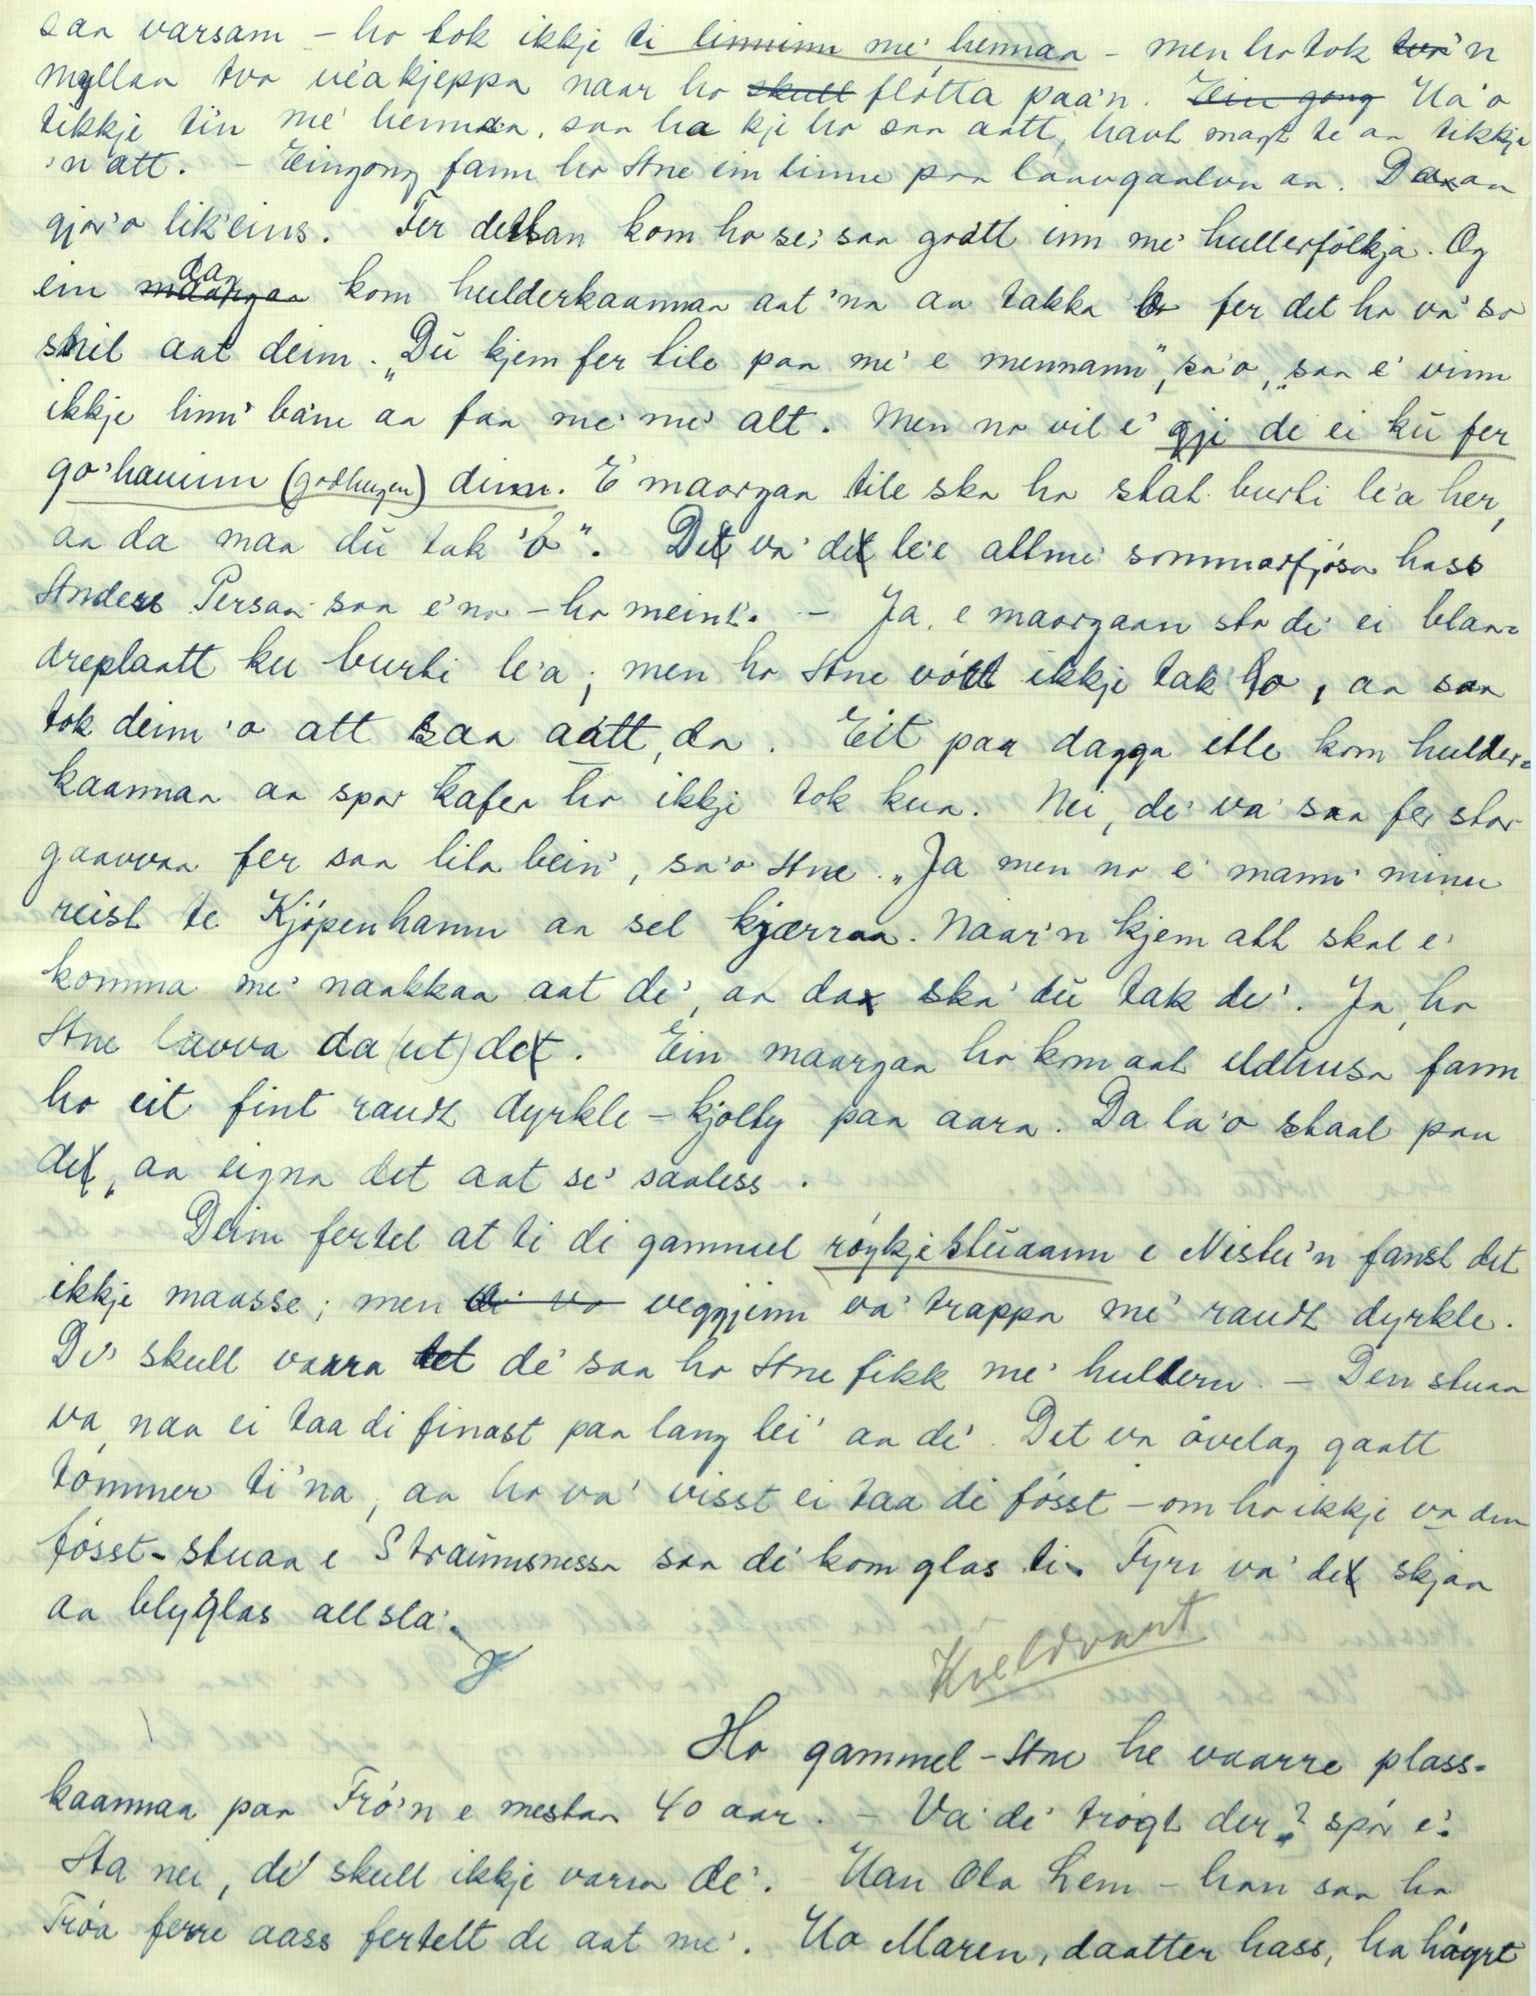 saa varsam – ho tok ikkje ti linninn me' hennaa – men ho tok tvo'n
myllaa tvo ve'akjeppa naar ho skull flótta paa'n. Ein gong Ha'o
tikkje ti'n me' hennaa, saa ha kje ho saa aatt, havt magt te aa tikkja
'n att. – Eingong fann ho Ane ein linne paa laavgaalva aa. Da aa
gjor'o lik'eins. Fer dettan kom ho se' saa gótt inn me' hullerfólkja. Og
ein maargaa daa kom hulderkaannaa aat 'na aa takka ho fer det ho va' so
snil aat deim. „Dú kjem fer tile paa me' e mennann", sa'o, „saa e' vinn
ikkje linn' ba'ne aa faa me' me' alt. Men no vil e' gji de ei kú fer
go'hauinn (godhugen) dinn. E maargaa tile ska ho staa burti le'a her,
aa da maa dú tak 'ó". Det va' det le'e attme' sommarfjósa hass
Anders Persaa saa e' no – ho meint'. – Ja, e maargaan sto de' ei blan=
dreplaatt ku burti le'a; men ho Ane vótt ikkje tak ho, aa saa
tok deim 'o att saa aatt, da. Eit paa dagga ette kom hulder=
kaannaa aa spor kafer ho ikkje tok kua. Nei, de' va' saa fer stor
gaavvaa fer saa lita bein', sa'o Ane. „Ja men no e' mann' minn
reist te Kjópenhamn aa sel kjærraa. Naar'n kjem att skal e'
komma me' naakkaa aat de', aa da ska' dú tak de'. Ja, ho
Ane lavva da (ut) det. Ein maargaa ho kom aat eldhusa fann
ho eit fint raudt dyrkle – kjolty paa aara. Da la'o staal paa
det, aa eigna det aat se' saaless.
Deim fertel at ti di gammel róykjestúaann e Nistu'n fanst det
ikkje maasse; men de' va veggjinn va' trappa me' raudt dyrkle.
De' skull vaara tet de' saa ho Ane fikk me' huldern. – Den stuaa
va naa ei taa di finast paa lang lei' aa de'. Det va óvelag gaatt
tómmer ti 'na, aa ho va' visst ei taa di fósst – om ho ikkje va den
fósst-stuaa e Straumsnessa saa de' kom glas ti. Fyri va' det skjaa
aa blyglas allsla'.
Kveldvant
Ho gammel-Ane he vaarre plass-
kaannaa paa Tró'n e mestaa 40 aar. – Va' de' trógt der? spór e'.
Aa nei, de' skull ikkje vaara de'. Han Ola Lem – han saa ha
Tróa ferre aass fertelt de aat me'. Ho Maren, daatter hass, ha hóyrt